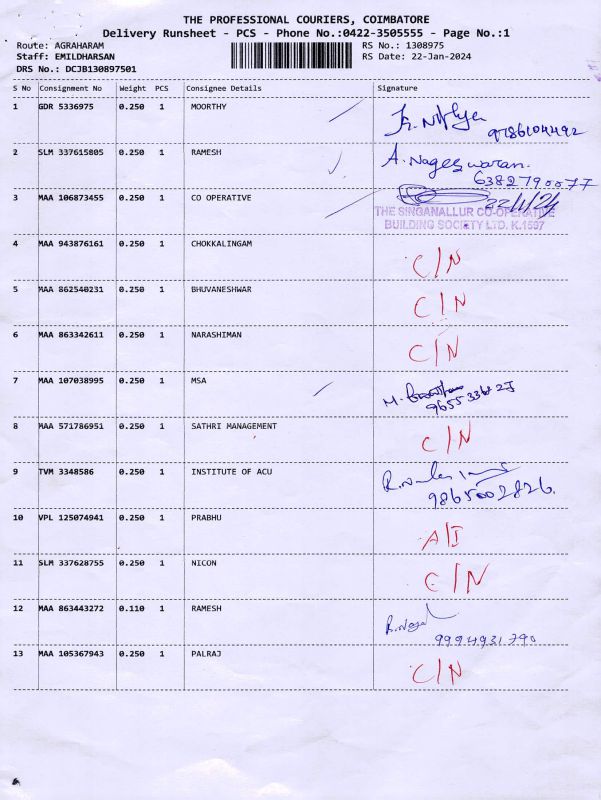 THE PROFESSIONAL COURIERS, COIMBATORE
Delivery Runsheet - PCS - Phone No.:0422-3505555 - Page No.:1
Route: AGRAHARAM RS No.: 1308975
Staff: EMILDHARSAN RS Date: 22-Jan-2024
DRS No.: DCJB130897501
S No Consignment No Weight PCS Consignee Details Signature
1 GDR 5336975 0.250 1 MOORTHY
9786104492
2 SLM 337615805 0.250 1 RAMESH A. Nageswaran.
6382790077
3 MAA 106873455 0.250 1 CO OPERATIVE 22/1/24
THE SINGANALLUR CO-OPERATIVE
BUILDING SOCIETY LTD. K.1597
4 MAA 943876161 0.250 1 CHOKKALINGAM C/N
5 MAA 862540231 0.250 1 BHUVANESHWAR C/N
6 MAA 863342611 0.250 1 NARASHIMAN C/N
7 MAA 107038995 0.250 1 MSA
8 MAA 571786951 0.250 1 SATHRI MANAGEMENT C/N
9 TVM 3348586 0.250 1 INSTITUTE OF ACU
9865002826.
10 VPL 125074941 0.250 1 PRABHU A/I
11 SLM 337628755 0.250 1 NICON C/N
12 MAA 863443272 0.110 1 RAMESH
9994931790
13 MAA 105367943 0.250 1 PALRAJ C/N